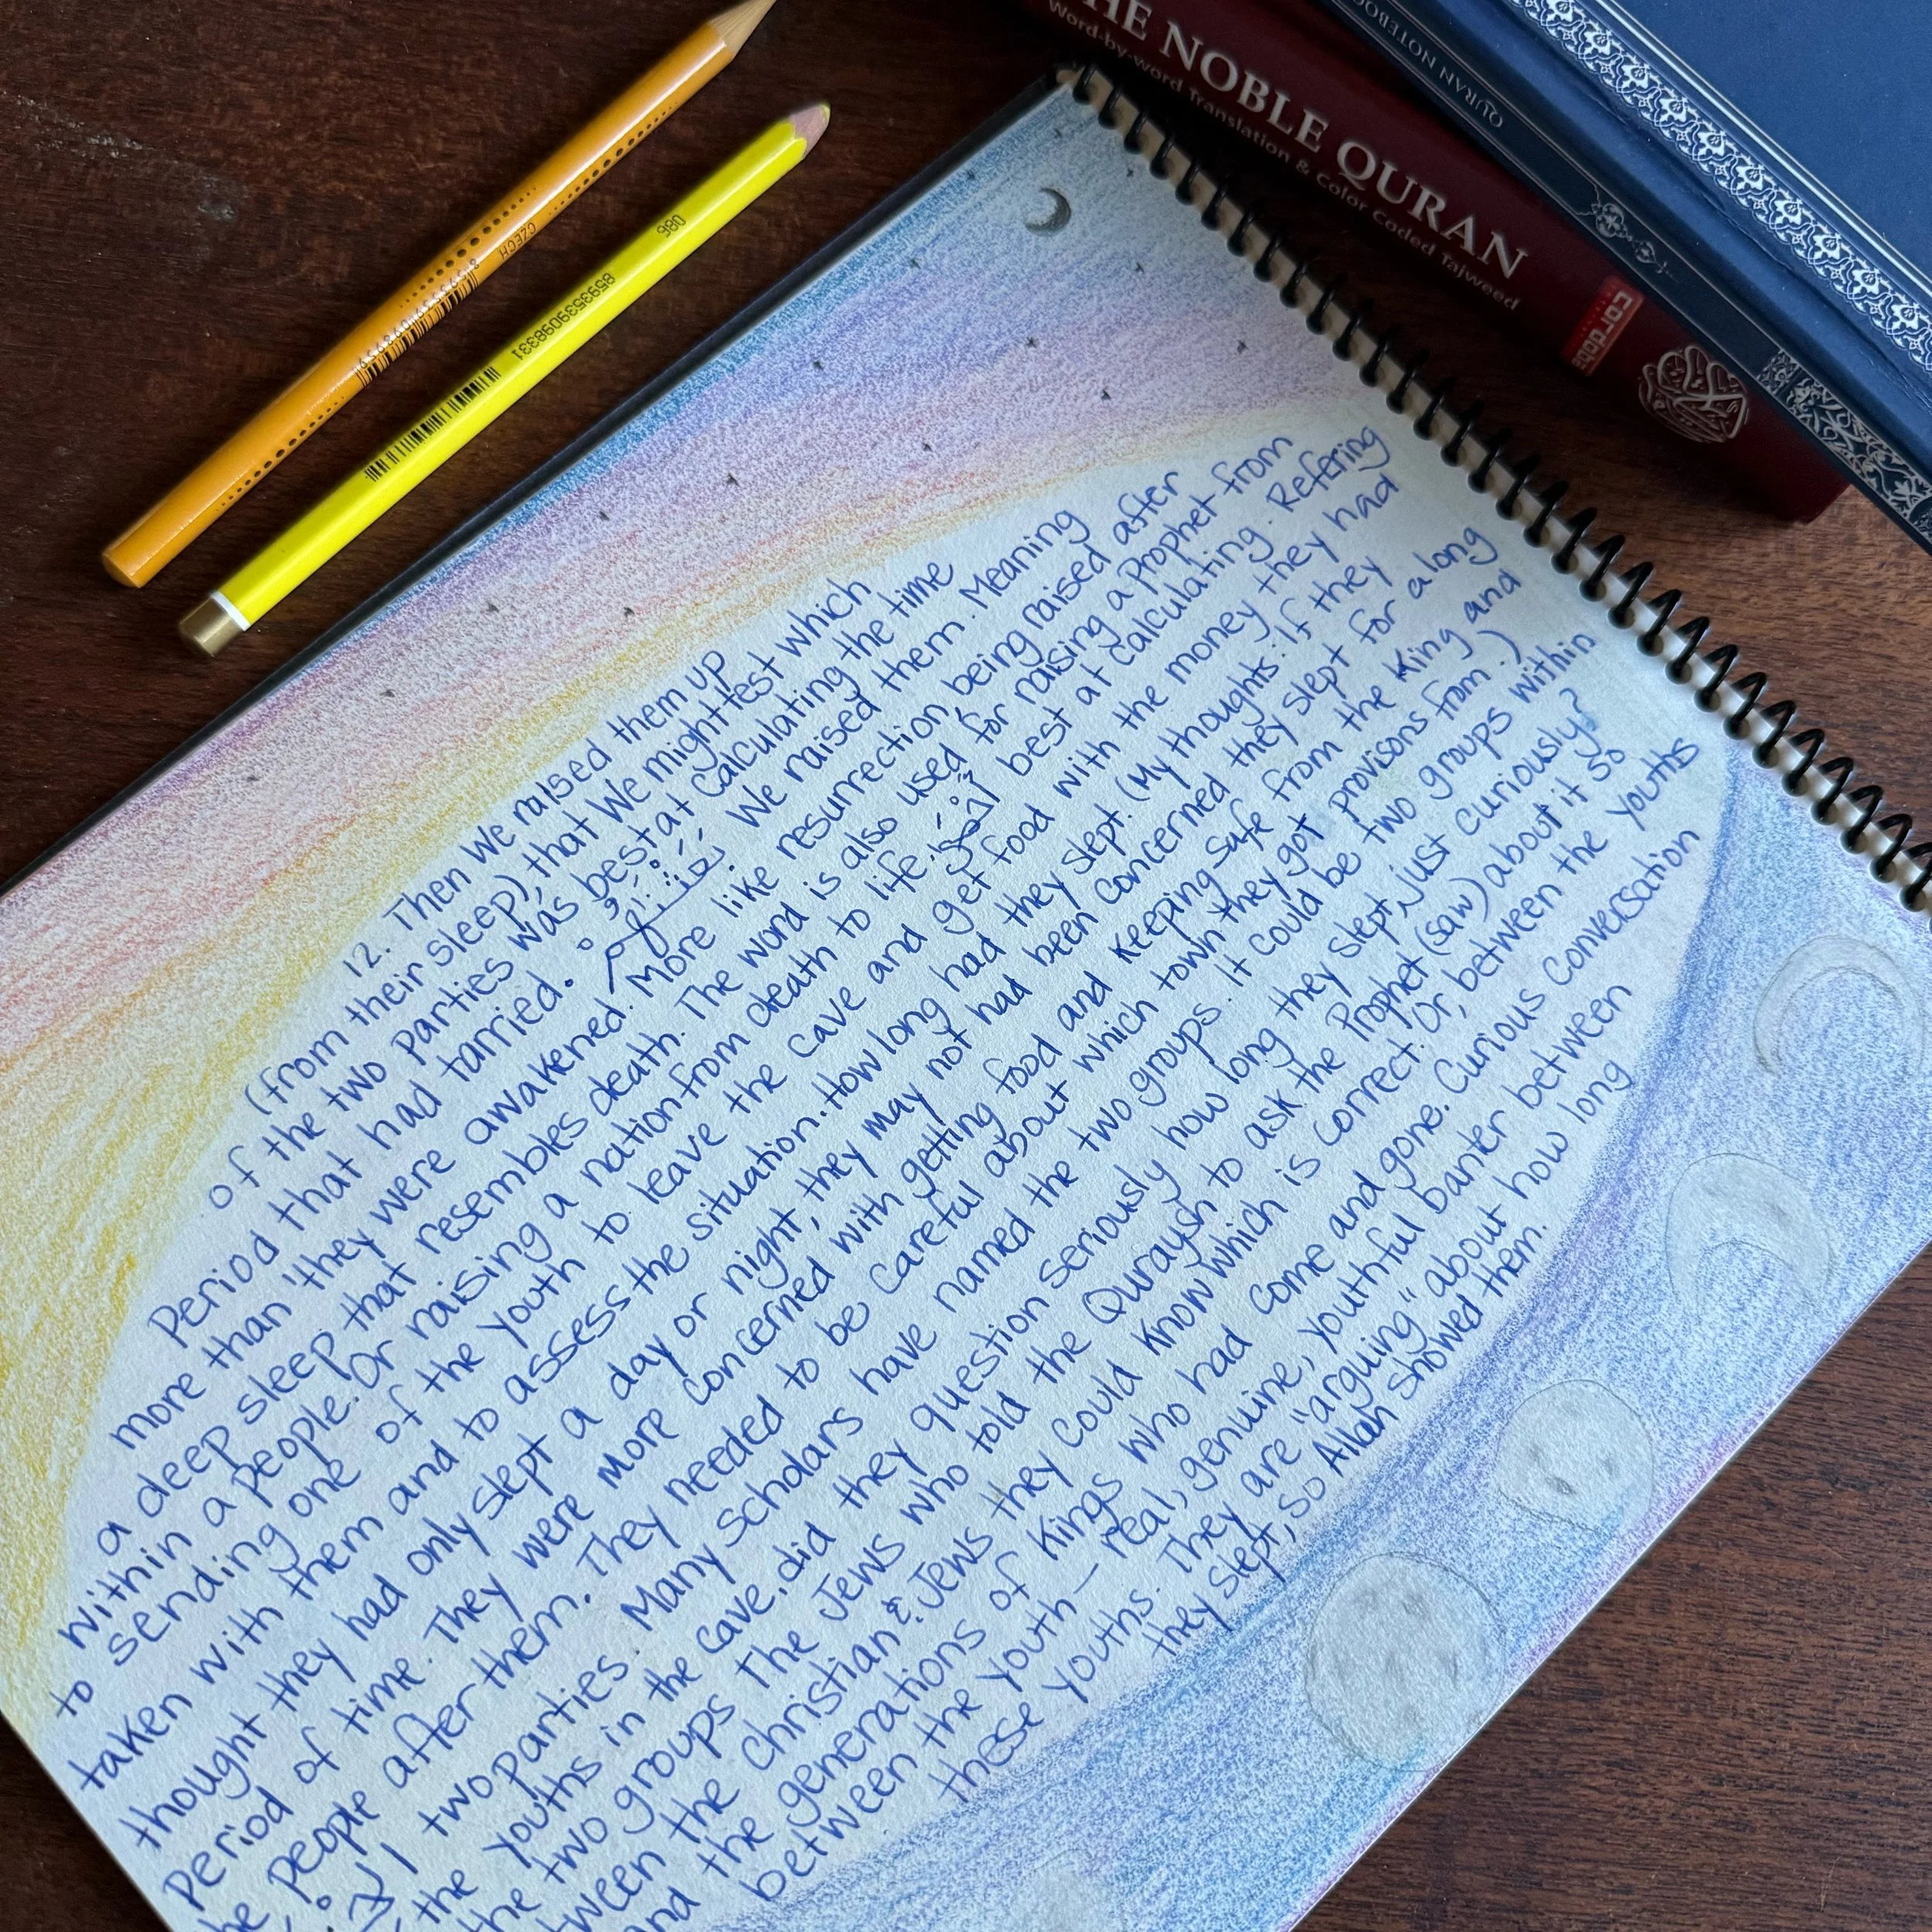 CZECH
086
8593539098331
HE NOBLE QURAN
Word-by-word Translation & Color Coded Tajweed
cordoba
QURAN NOTEBOO
12. Then We raised them up
(from their sleep), that We might test which
of the two parties was best at calculating the time
period that had tarried. We raised them. Meaning
more than "they were awakened. More like resurrection, being raised after
a deep sleep that resembles death. The word is also used for raising a prophet from
within a people. Or raising a nation from death to life. best at calculating. Refering
to sending one of the youth to leave the cave and get food with the money they had
taken with them and to assess the situation. How long had they slept. (My thoughts: If they
thought they had only slept a day or night, they may not had been concerned they slept for a long
period of time. They were more concerned with getting food and keeping safe from the King and
he people after them. They needed to be careful about which town they got provisons from.)
two parties. Many scholars have named the two groups. It could be two groups within
the youths in the cave, did they question seriously how long they slept, just curiously?
the two groups The Jews who told the Quraysh to ask the Prophet (saw) about it so
tween the Christian & Jews they could know which is correct. Or, between the youths
and the generations of Kings who had come and gone. Curious conversation
between the youth - real, genuine, youthful banter between
these youths. They are "arguing" about how long
they slept, so Allah showed them.